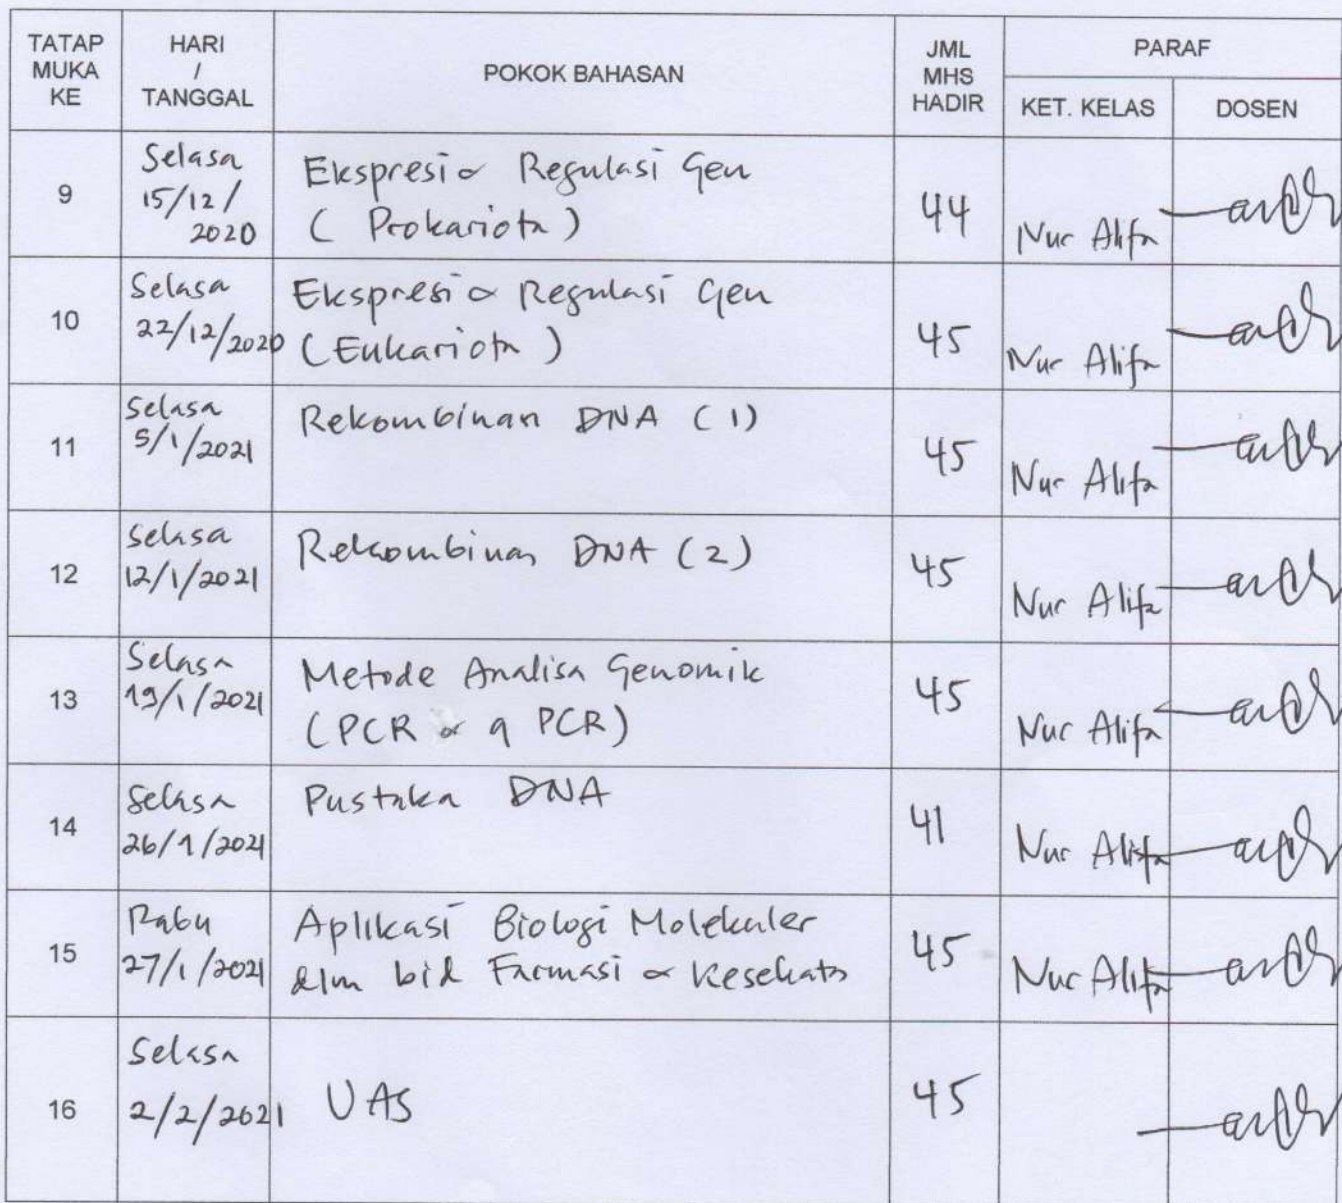 TATAP MUKA KE
HARI / TANGGAL
POKOK BAHASAN
JML MHS HADIR
PARAF
KET. KELAS
DOSEN
9
Selasa
15/12/
2020
Ekspresi & Regulasi Gen
(Prokariota)
44
Nur Alifa
10
Selasa
22/12/2020
Ekspresi & Regulasi Gen
(Eukariota)
45
Nur Alifa
11
Selasa
5/1/2021
Rekombinan DNA (1)
45
Nur Alifa
12
Selasa
12/1/2021
Rekombinan DNA (2)
45
Nur Alifa
13
Selasa
19/1/2021
Metode Analisa Genomik
(PCR & q PCR)
45
Nur Alifa
14
Selasa
26/1/2021
Pustaka DNA
41
Nur Alifa
15
Rabu
27/1/2021
Aplikasi Biologi Molekuler
dlm bid Farmasi & Kesehatn
45
Nur Alifa
16
Selasa
2/2/2021
UAS
45